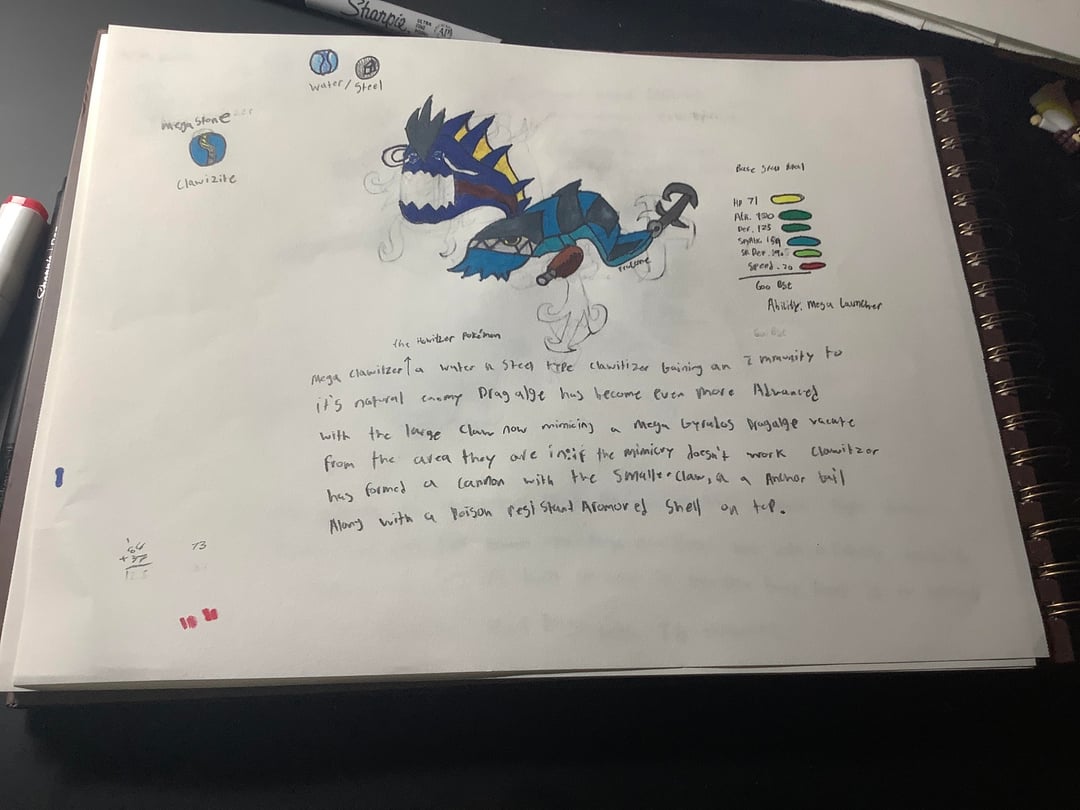 Sharpie
ULTRA FINE
AP
Water / Steel
mega stone
Clawizite
Base Stat
HP 71
Atk. 
Def. 125
SpAtk. 
Sp. Def. 
Speed. 20
600 BSt
Ability. Mega Launcher
600 BSt
the Howitzer Pokémon
Mega Clawitzer ↑ a water a Steel type Clawitizer Gaining an Immunity to
it's natural enemy Dragalge has become even more Advanced
with the large Claw now mimicing a Mega Gyrados Dragalge vacate
from the area they are in. if the mimicry doesn't work Clawitzer
has formed a cannon with the smaller claw, a a Anchor tail
Along with a Poison resistant Aromored Shell on top.
73
Sharpie